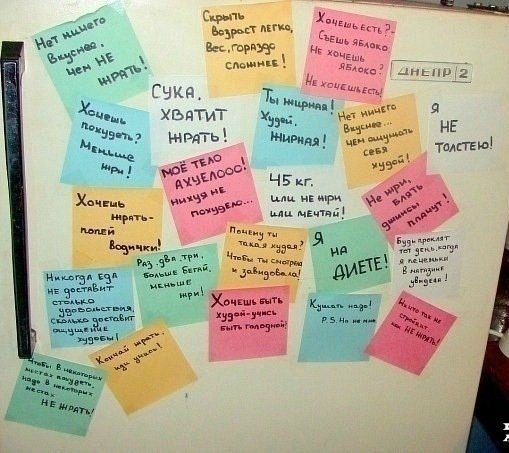 Нет ничего
Вкуснее,
чем НЕ
ЖРАТЬ!
Скрыть
Возраст легко,
Вес, гораздо
сложнее!
Хочешь есть?-
Съешь яблоко
Не хочешь
яблоко?
Не хочешь есть!
ДНЕПР 2
Хочешь
похудеть?
Меньше
жри!
СУКА,
ХВАТИТ
ЖРАТЬ!
Ты жирная!
Худей,
ЖИРНАЯ!
Нет ничего
Вкуснее...
чем ощущать
себя
худой!
Я
НЕ
ТОЛСТЕЮ!
МОЁ ТЕЛО
АХУЕЛООО!
нихуя не
похудело...
45 кг.
или не жри
или мечтай!
Не жри,
БЛЯТЬ
джинсы
плачут!
Хочешь
жрать-
попей
водички!
Раз, два, три,
больше бегай,
меньше
жри!
Почему ты
такая худая?
Чтобы ты смотрела
и завидовала!
Я
НА
ДИЕТЕ!
Будь проклят
тот день, когда
я печеньки
в магазине
увидела!
Никогда ЕДА
не доставит
столько
удовольствия,
сколько доставит
ощущение
худобы!
Хочешь быть
худой-учись
быть голодной!
Кушать надо!
P.S. Но не мне
Ничто так не
стройнит,
как НЕ ЖРАТЬ!
Чтобы в некоторых
местах похудеть,
надо в некоторых
местах
НЕ ЖРАТЬ!
Кончай жрать,
иди учись!